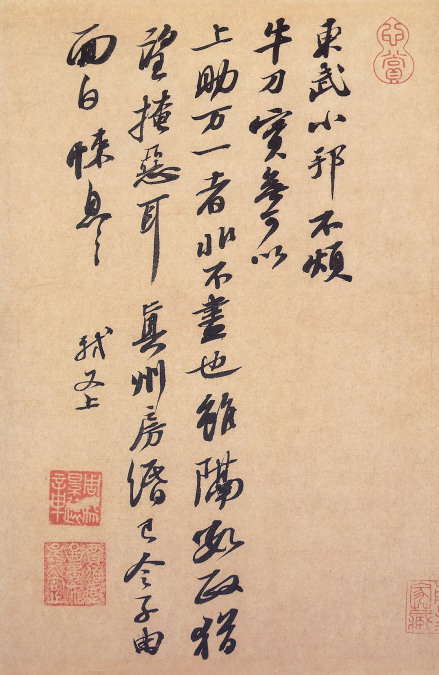 東武小邦不煩
牛刀實無可以
上助万一者非不盡也雖隔數政猶
望掩惡耳真州房緡已令子由
面白悚息〻
軾又上
家藏